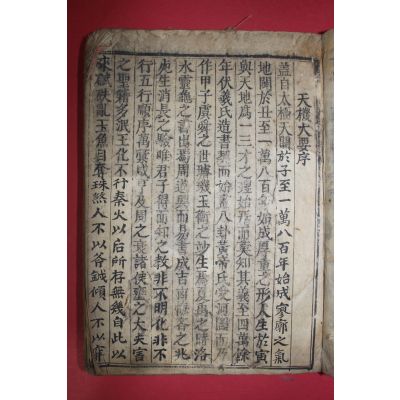 天機大要序
盖自太極入闢於子至一萬八百年始成寥廓之氣
地闢於丑至一萬八百年始成厚重之形人生於寅
與天地爲一三才之理始形而莫知其義至四萬餘
年伏羲氏造書契而始畫八卦黃帝氏受河圖而乃
作甲子虞舜之世璿璣玉衡之妙生焉夏禹之時洛
水靈龜之書出焉周道興而易書成吉凶悔吝之兆
庚生消長之驗唯君子得而知之敎非不明化非不
行五行順序萬彙咸亨及周之衰諸侯壅之大夫害
之聖籍多泯王化不行秦火以后所存無幾自此以
來 玉魚目奪珠煞人不以斧鉞傾人不以穽